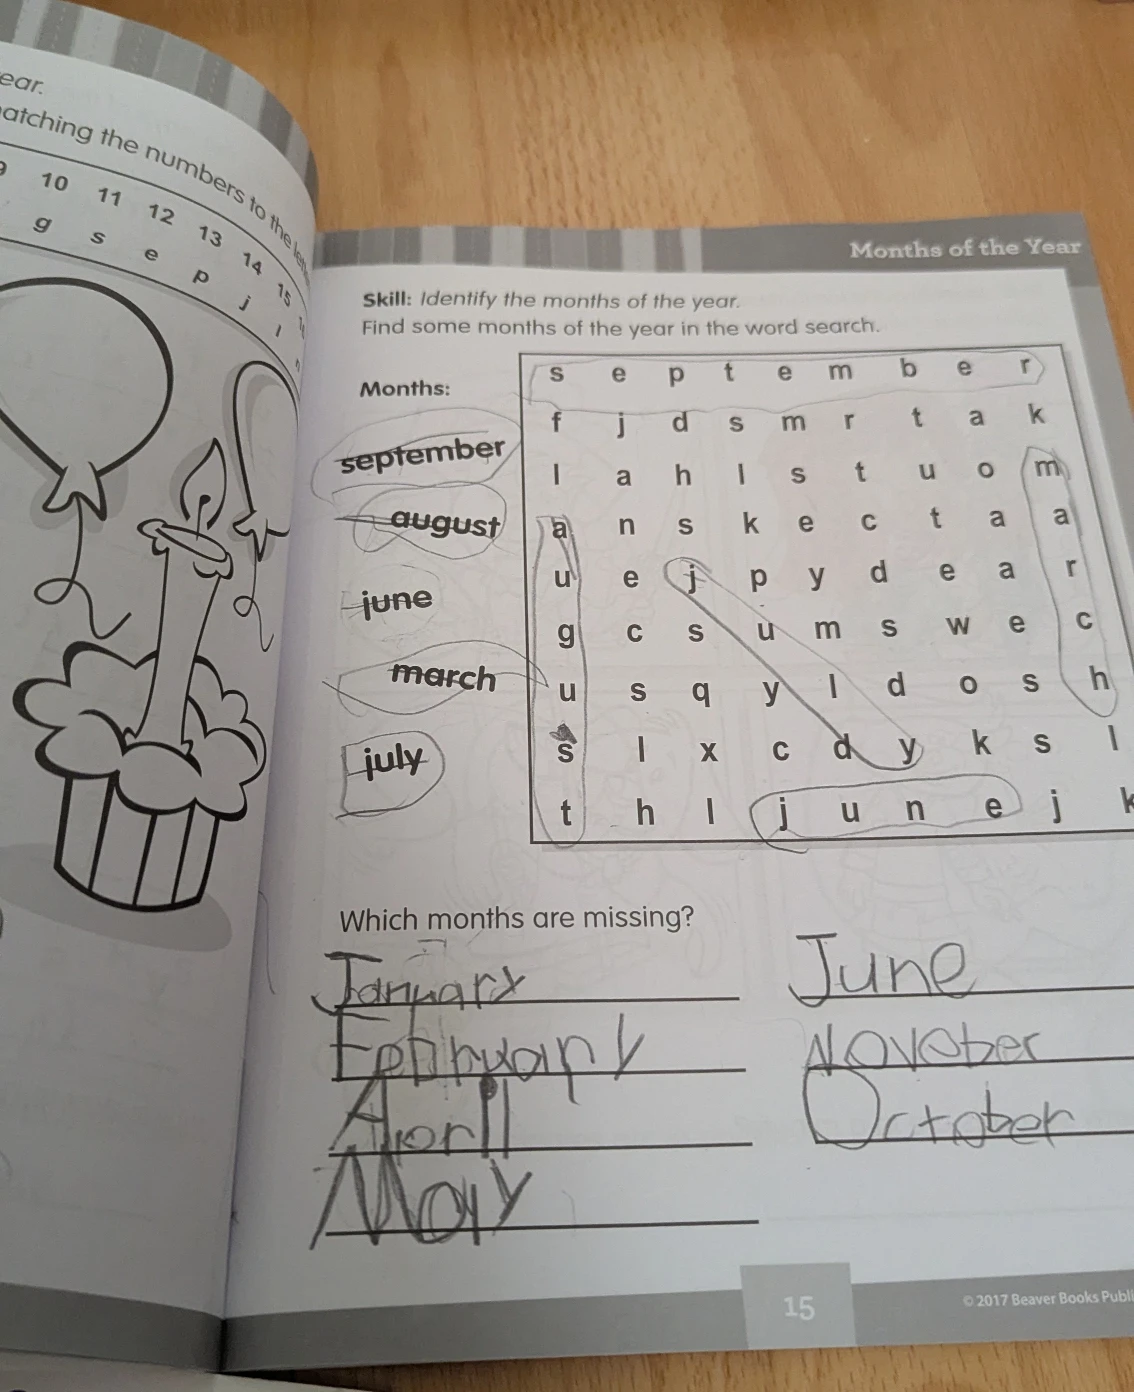 ear.
atching the numbers to the
9 10 11 12 13 14 15
g s e p j l n
Months of the Year
Skill: Identify the months of the year.
Find some months of the year in the word search.
Months:
september
august
june
march
july
s e p t e m b e r
f j d s m r t a k
l a h l s t u o m
a n s k e c t a a
u e j p y d e a r
g c s u m s w e c
u s q y l d o s h
s l x c d y k s l
t h l j u n e j k
Which months are missing?
January
February
April
May
June
Novober
October
15
© 2017 Beaver Books Publi